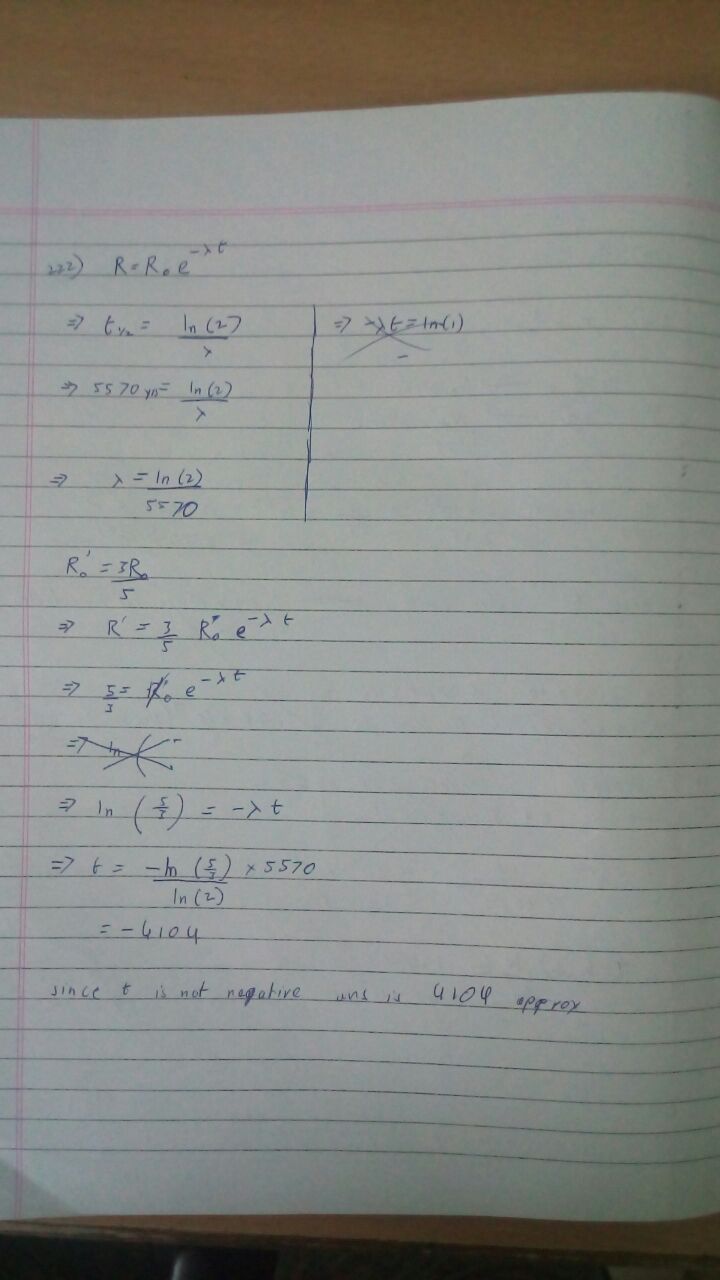 222) R = R₀ e^{-λt}
⇒ t_{1/2} = ln(2)/λ
⇒ λt = ln(1)
⇒ 5570 yrs = ln(2)/λ
⇒ λ = ln(2)/5570
R₀' = 3R₀/5
⇒ R' = 3/5 R₀ e^{-λt}
⇒ 5/3 = R₀' e^{-λt}
⇒ ln (
⇒ ln (5/3) = -λt
⇒ t = -ln (5/3) × 5570 / ln(2)
= -4104
since t is not negative ans is 4104 approx